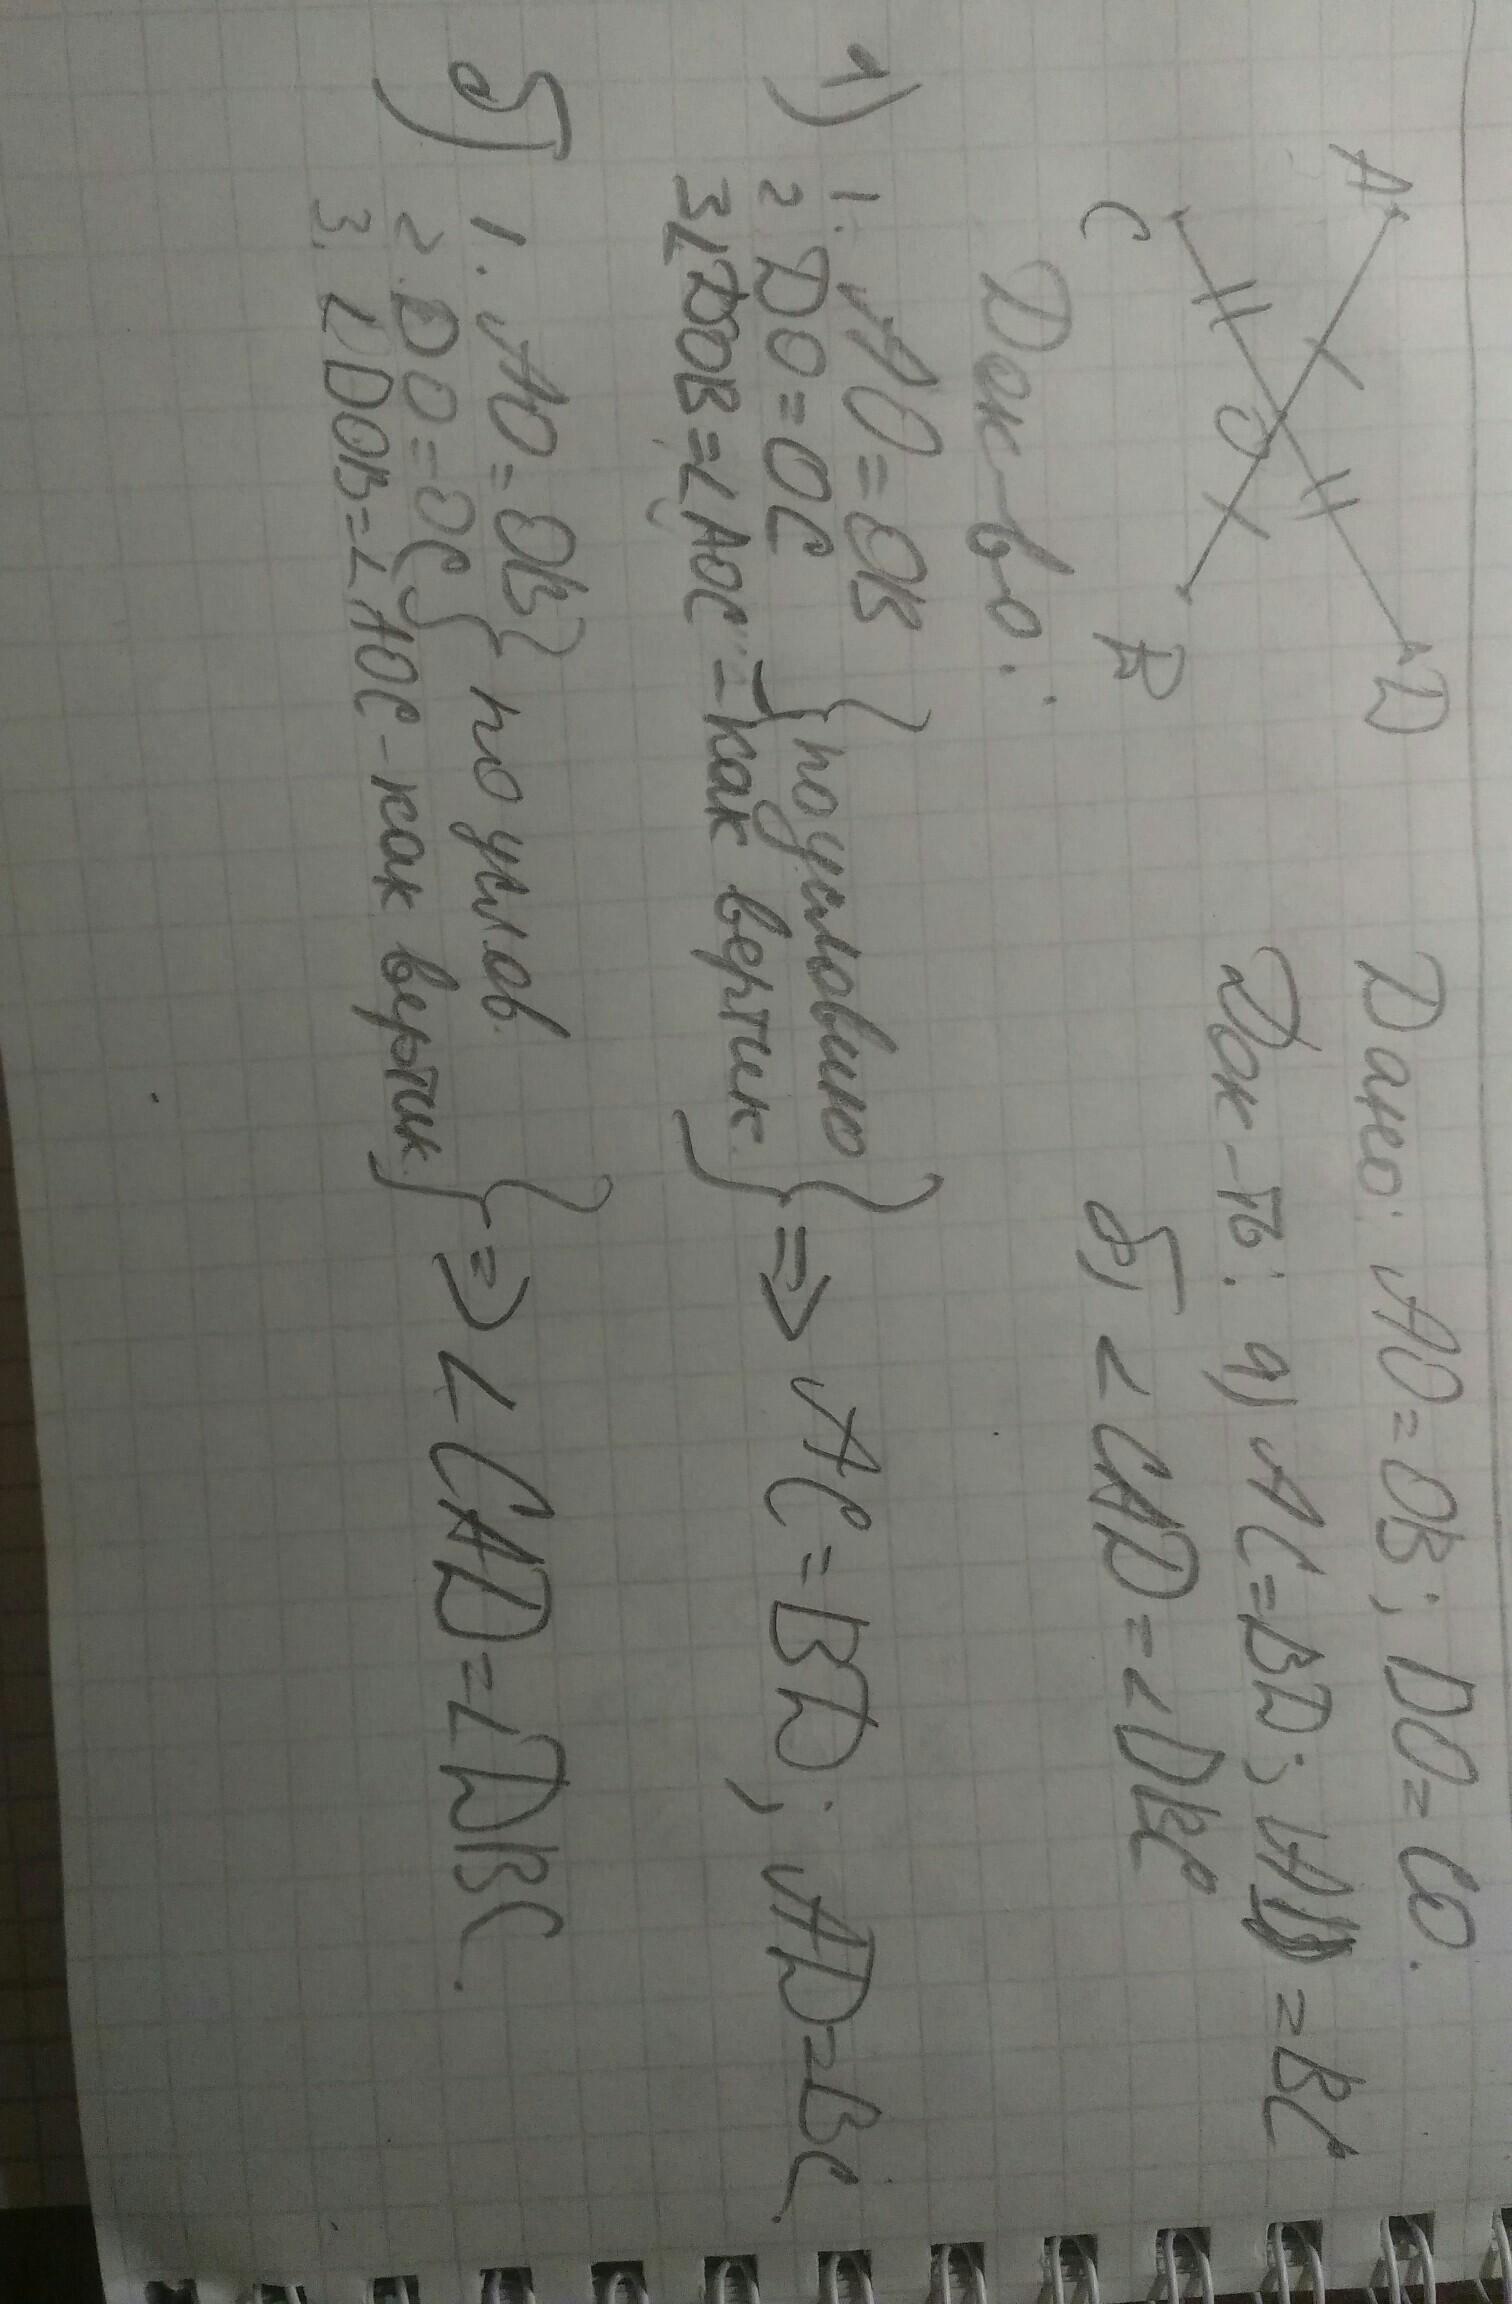 A D
O
C B
Дано: AO=OB; DO=CO.
Док-ть: а) AC=BD; AD=BC
б) ∠CAD=∠DBC
Док-во:
1) 1. AO=OB } по условию
2 DO=OC
3 ∠DOB=∠AOC - как вертик. } => AC=BD; AD=BC.
б) 1. AO=OB } по услов.
2. DO=OC
3. ∠DOB=∠AOC - как вертик. } => ∠CAD=∠DBC.